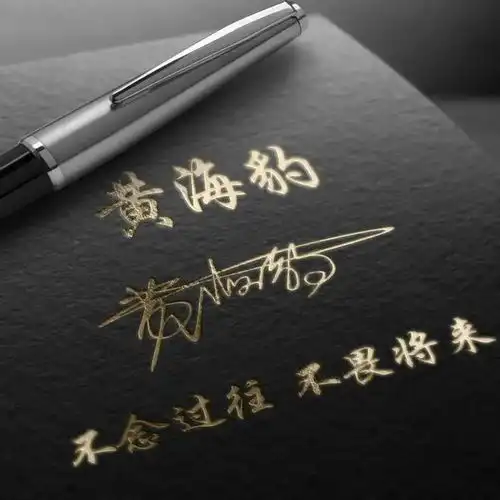 黄海豹
黄海豹
不念过往 不畏将来